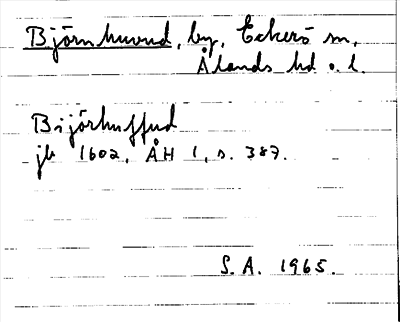 Björnhuvud, by, Eckerö sn,
Ålands hd o. l.
Bijörhuffud
jb 1602, ÅH 1, s. 387.
S. A. 1965.